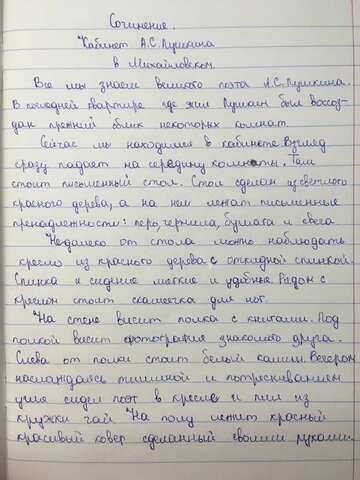 Сочинение.
"Кабинет А.С Пушкина
в Михайловском.
Все мы знаем великого поэта А.С.Пушкина.
В последней квартире где жил Пушкин был воссоз-
дан прежний облик некоторых комнат.
Сейчас мы находимся в кабинете. Взгляд
сразу падает на середину комнаты. Там
стоит письменный стол. Стол сделан из светлого
красного дерева, а на нем лежат письменные
принадлежности: перо, чернила, бумага и свеча
Недалеко от стола можно наблюдать
кресло из красного дерева с откидной спинкой.
Спинка и сидение мягкие и удобные. Рядом с
креслом стоит скамеечка для ног.
На стене висит полка с книгами. Под
полкой висит фотография знакомого друга.
Слева от полки стоит белый камин. Вечером
наслаждаясь тишиной и потрескиванием
углей сидел поэт в кресле и пил из
кружки чай На полу лежит красный
красивый ковер сделанный своими руками.